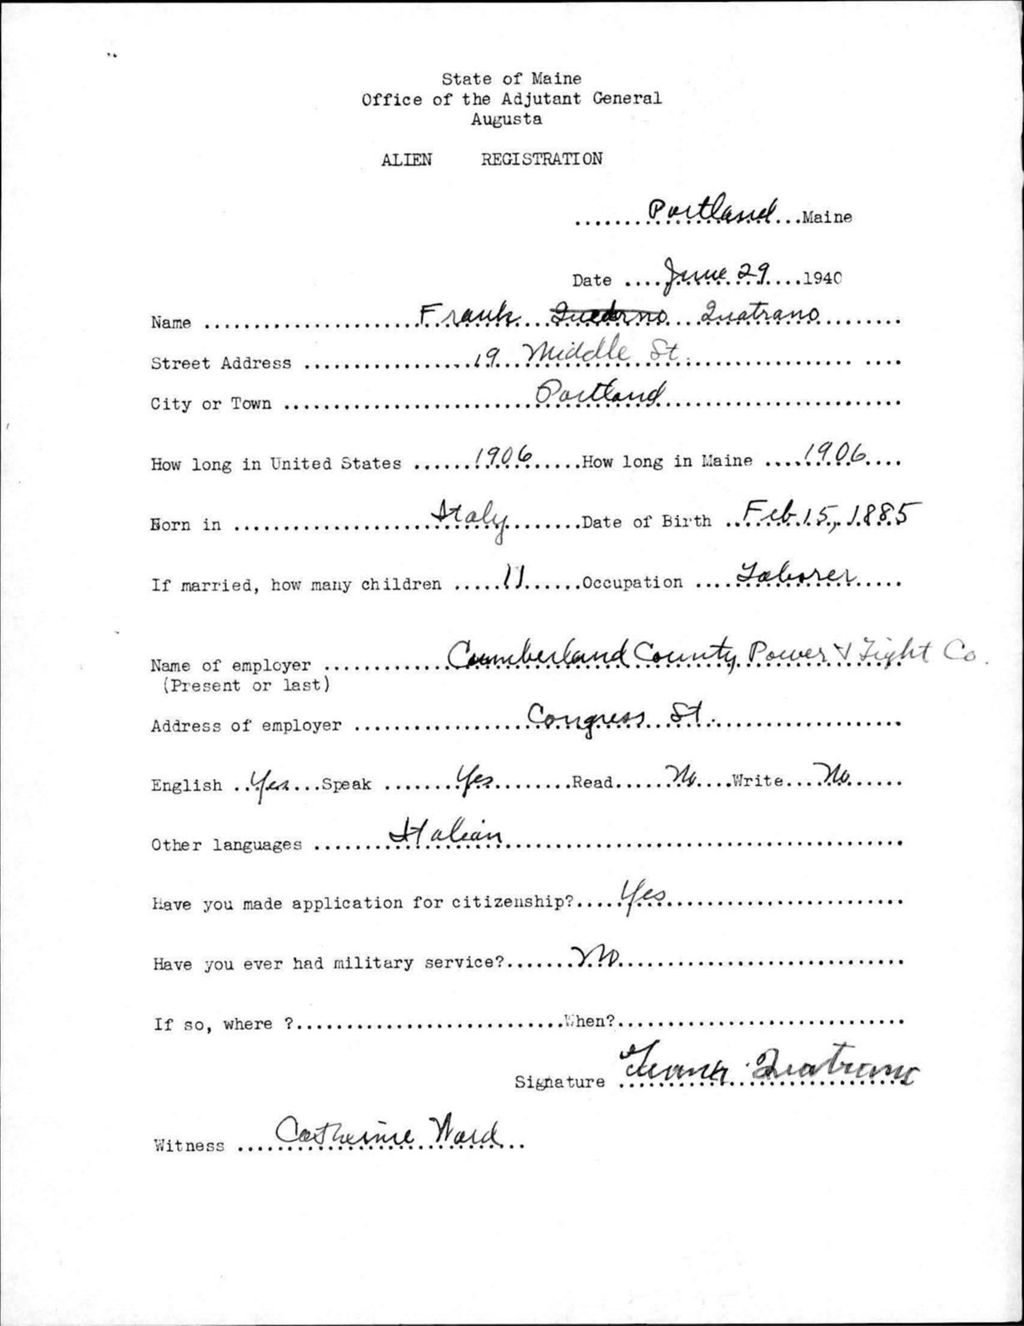 State of Maine
Office of the Adjutant General
Augusta
ALIEN REGISTRATION
.......Portland...Maine
Date ....June 29....1940
Name ......................Frank Quatrano.........
Street Address .................19 Middle St...................... ....
City or Town .........................Portland.........................
How long in United States ......1906.....How long in Maine ....1906....
Born in ....................Italy........Date of Birth ..Feb. 15, 1885
If married, how many children .....11......Occupation ....Laborer.....
Name of employer ............Cumberland County Power & Light Co.
(Present or last)
Address of employer .................Congress St...................
English ..Yes...Speak ........Yes.........Read......No....Write...No......
Other languages ........Italian........................................
Have you made application for citizenship?....Yes........................
Have you ever had military service?.......No.............................
If so, where ?...........................When?.............................
Signature Frank Quatrano
Witness ....Catherine Ward...